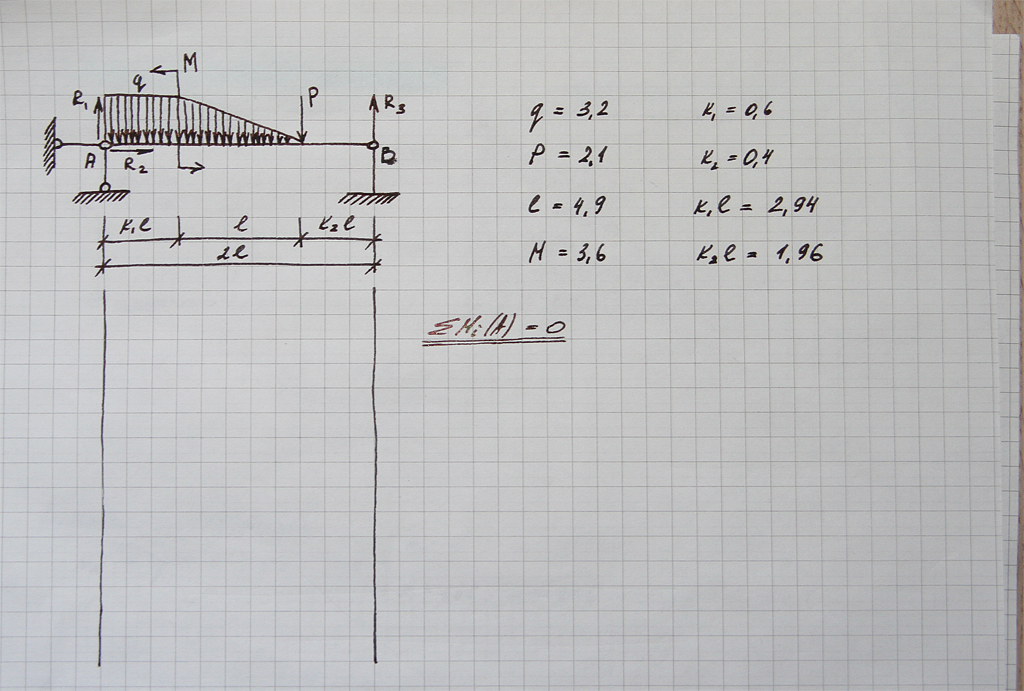 M
q
R₁
P
R₃
A
R₂
B
k₁l
l
k₂l
2l
q = 3,2
P = 2,1
l = 4,9
M = 3,6
k₁ = 0,6
k₂ = 0,4
k₁l = 2,94
k₂l = 1,96
ΣMᵢ(A) = 0